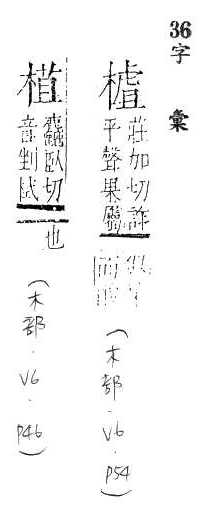 36字 彙
樝
莊加切詐
平聲果屬
(木部.V6.P54)
麤臥切
音剉拭
也
(木部.V6.P46)